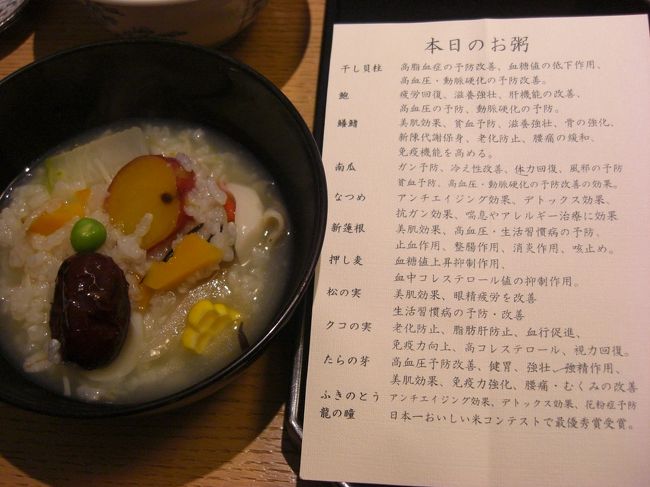 本日のお粥
干し貝柱 高脂血症の予防改善、血糖値の低下作用、
高血圧・動脈硬化の予防改善。
鮑 疲労回復、滋養強壮、肝機能の改善、
高血圧の予防、動脈硬化の予防。
鱶鰭 美肌効果、貧血予防、滋養強壮、骨の強化、
新陳代謝保身、老化防止、腰痛の緩和、
免疫機能を高める。
南瓜 ガン予防、冷え性改善、体力回復、風邪の予防
貧血予防、高血圧・動脈硬化の予防改善の効果。
なつめ アンチエイジング効果、デトックス効果、
抗ガン効果、喘息やアレルギー治療に効果
新蓮根 美肌効果、高血圧・生活習慣病の予防、
止血作用、整腸作用、消炎作用、咳止め。
押し麦 血糖値上昇抑制作用、
血中コレステロール値の抑制作用。
松の実 美肌効果、眼精疲労を改善
生活習慣病の予防・改善
クコの実 老化防止、脂肪肝防止、血行促進、
免疫力向上、高コレステロール、視力回復。
たらの芽 高血圧予防改善、健胃、強壮、強精作用、
美肌効果、免疫力強化、腰痛・むくみの改善
ふきのとう アンチエイジング効果、デトックス効果、花粉症予防
龍の瞳 日本一おいしい米コンテストで最優秀賞受賞。